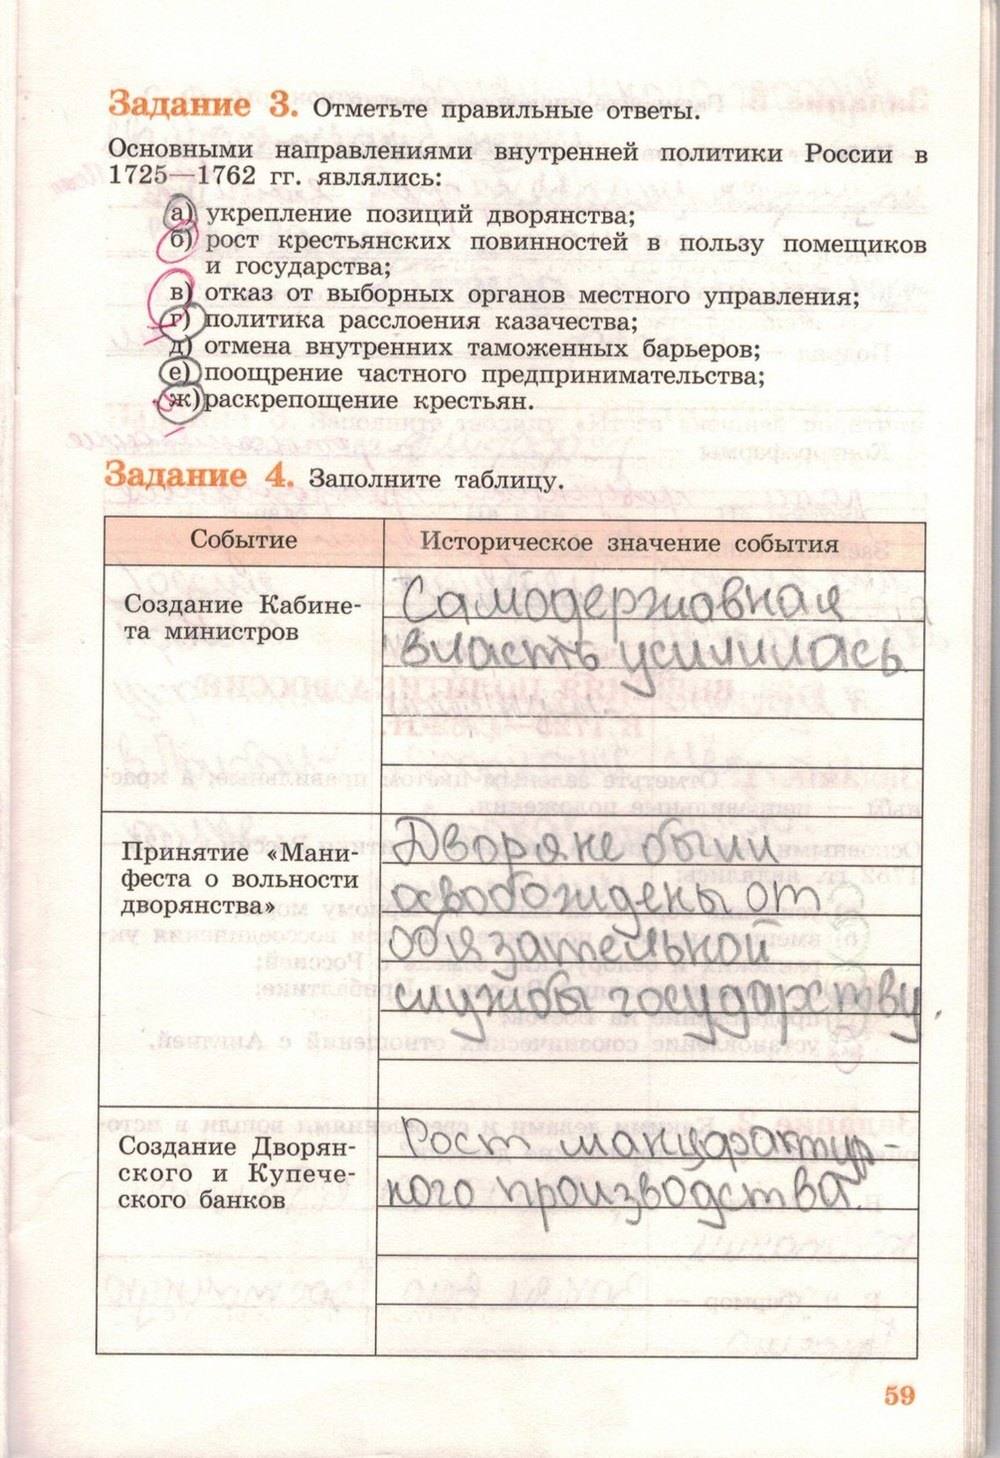 Задание 3. Отметьте правильные ответы.
Основными направлениями внутренней политики России в
1725—1762 гг. являлись:
а) укрепление позиций дворянства;
б) рост крестьянских повинностей в пользу помещиков
и государства;
в) отказ от выборных органов местного управления;
г) политика расслоения казачества;
д) отмена внутренних таможенных барьеров;
е) поощрение частного предпринимательства;
ж) раскрепощение крестьян.
Задание 4. Заполните таблицу.
Событие
Историческое значение события
Создание Кабине-
та министров
Самодержавная
власть усилилась
Принятие «Мани-
феста о вольности
дворянства»
Дворяне были
освобождены от
обязательной
службы государству.
Создание Дворян-
ского и Купече-
ского банков
Рост мануфактур-
ного производства.
59